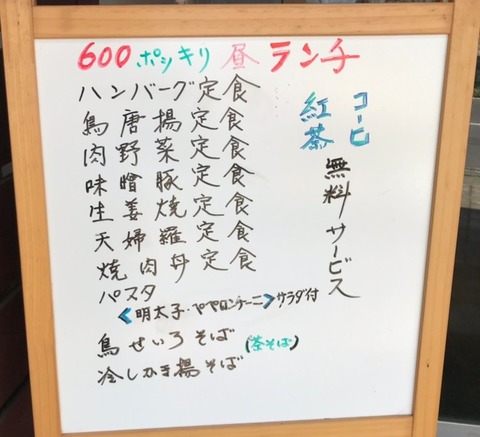 600ポッキリ 昼ランチ
ハンバーグ定食
鳥唐揚定食
肉野菜定食
味噌豚定食
生姜焼定食
天婦羅定食
焼肉丼定食
パスタ
<明太子・ペペロンチーニ>サラダ付
鳥せいろそば
(茶そば)
冷しかき揚そば
コーヒ
紅茶
無料サービス